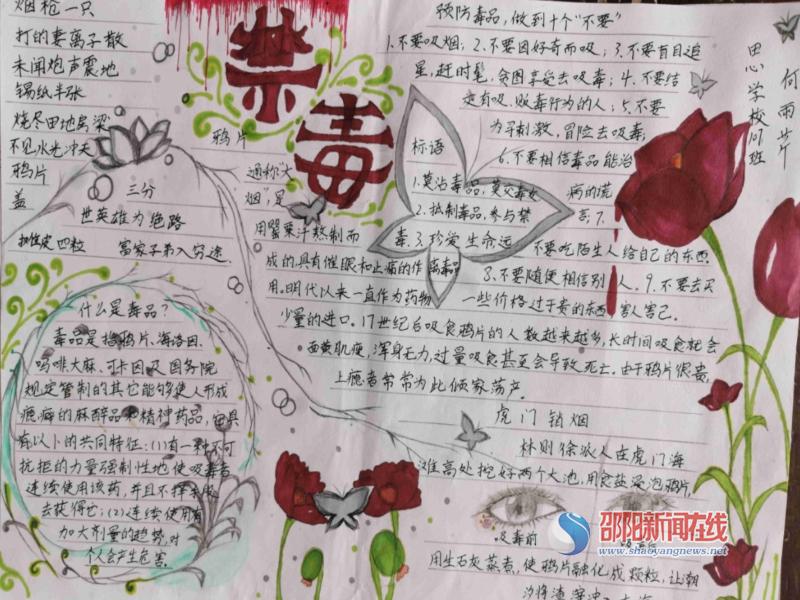 烟枪一只
打的妻离子散
未闻炮声震地
锡纸半张
烧尽田地房梁
不见火光冲天
鸦片
三分
盖
世英雄为绝路
四粒
富家子弟入穷途
禁毒
鸦片
通称"大
烟"是
用罂粟汁熬制而
成的具有催眠和止痛的作
用。明代以来一直作为药物
少量的进口。17世纪后吸食鸦片的人数越来越多,长时间吸食就会
面黄肌瘦,浑身无力,过量吸食甚至会导致死亡。由于鸦片很贵,
上瘾者常常为此倾家荡产。
什么是毒品?
毒品是指鸦片、海洛因、
吗啡大麻、可卡因及国务院
规定管制的其它能够使人形成
瘾癖的麻醉品和精神药品,它具
有以下的共同特征:(1)有一种不可
抗拒的力量强制性地使吸毒者
连续使用该药,并且不择手段
去获得它;(2)连续使用有
加大剂量的趋势,对
个人会产生危害.
预防毒品,做到十个"不要"
1.不要吸烟,2.不要因好奇而吸;3.不要盲目追
星,赶时髦,贪图享受去吸毒;4.不要结
交有吸、贩毒行为的人;5.不要
为寻刺激,冒险去吸毒;
6.不要相信毒品能治
病的谎
言;7.
不要吃陌生人给自己的东西
8.不要随便相信别人。9.不要去买
一些价格过于贵的东西 害人害己。
标语
1.莫沾毒品,莫交毒友
2.抵制毒品,参与禁
毒.3.珍爱生命远
离毒品
思学校
何雨芹
虎门销烟
林则徐派人在虎门海
滩高处挖好两个大池,用食盐浸泡鸦片,
吸毒前
吸毒后
用生石灰蒸煮,使鸦片融化成颗粒,让潮
邵阳新闻在线
www.shaoyangnews.net